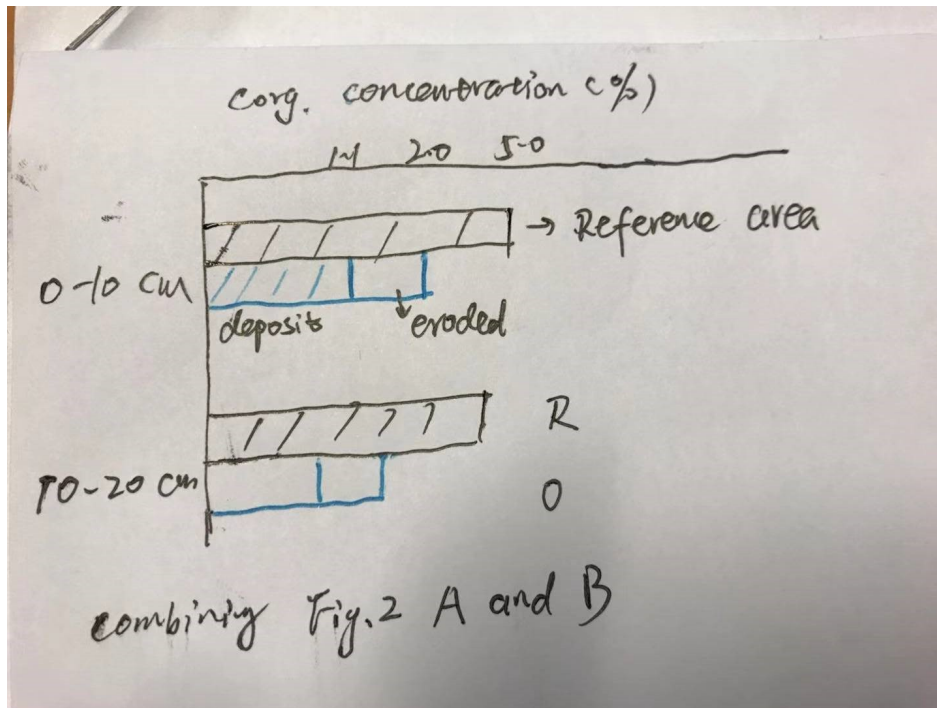 Corg. concentration (%)
1.1 2.0 5.0
→ Reference area
0-10 cm
deposits
eroded
R
10-20 cm
O
combining Fig.2 A and B